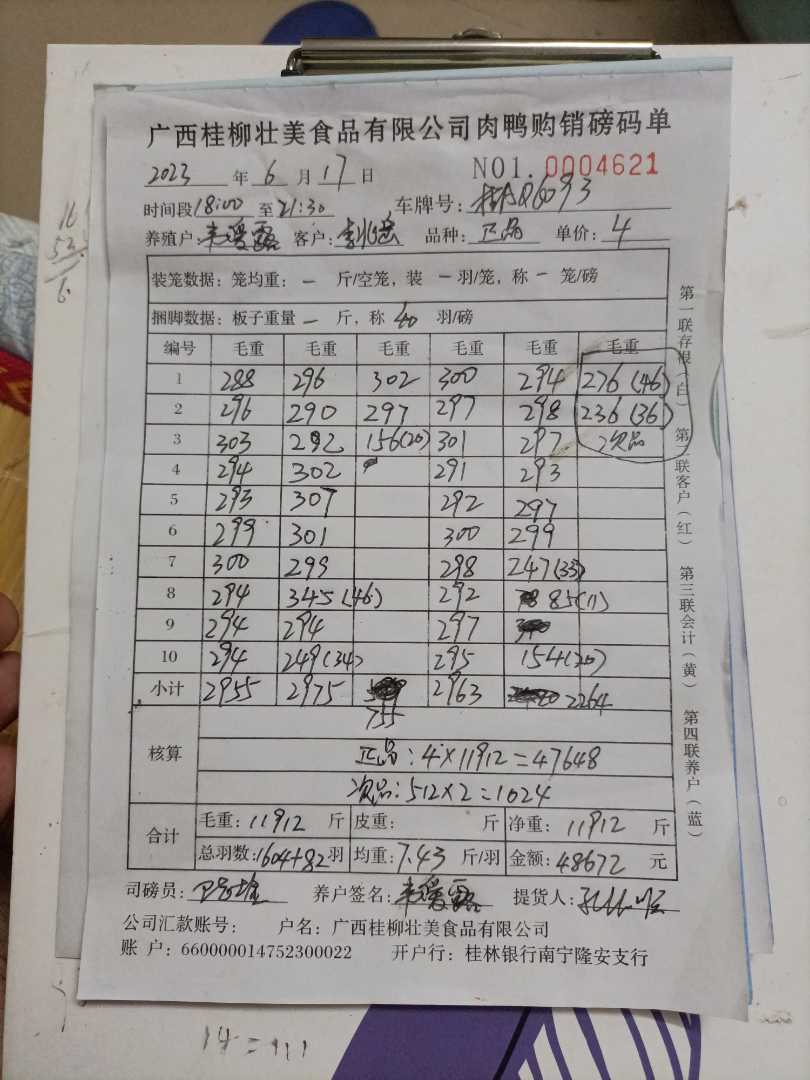 广西桂柳壮美食品有限公司肉鸭购销磅码单
2023 年 6 月 17 日 NO1. 0004621
时间段 18:00 至 21:30 车牌号: 桂AQ6093
养殖户: 客户: 品种: 正品 单价: 4
装笼数据: 笼均重: — 斤/空笼, 装 — 羽/笼, 称 — 笼/磅
捆脚数据: 板子重量 — 斤, 称 40 羽/磅
编号 毛重 毛重 毛重 毛重 毛重 毛重
1 288 296 302 300 294 276 (46)
2 296 290 297 297 298 236 (36)
3 303 292 156(20) 301 297 次品
4 294 302 291 293
5 293 307 292 297
6 299 301 300 299
7 300 299 298 247(33)
8 294 345(46) 292 85(11)
9 294 294 297
10 294 249(34) 295 154(20)
小计 2955 2975 2963 2264
755
核算
正品: 4×11912=47648
次品: 512×2=1024
合计
毛重: 11912 斤 皮重: 斤 净重: 11912 斤
总羽数: 1604+82 羽 均重: 7.43 斤/羽 金额: 48672 元
司磅员: 养户签名: 提货人:
公司汇款账号: 户名: 广西桂柳壮美食品有限公司
账 户: 660000014752300022 开户行: 桂林银行南宁隆安支行
第一联存根(白) 第二联客户(红) 第三联会计(黄) 第四联养户(蓝)